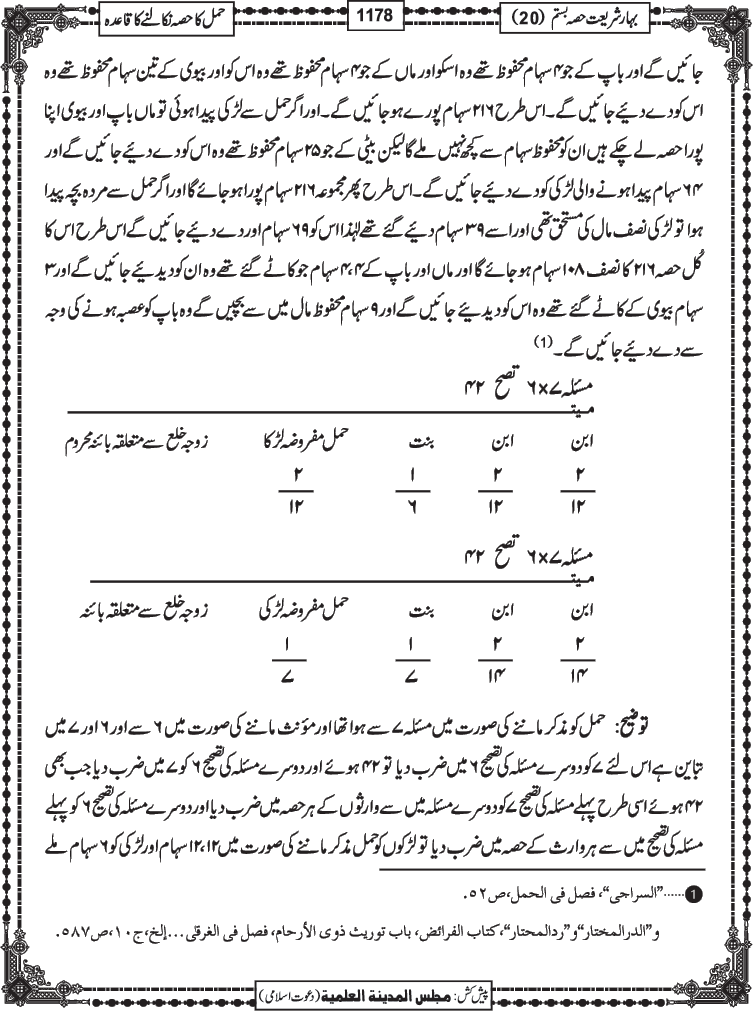 بہار شریعت حصہ بستم (20)
1178
حمل کا حصہ نکالنے کا قاعدہ
جائیں گے اور باپ کے جو ۴ سہام محفوظ تھے وہ اسکو اور ماں کے جو ۴ سہام محفوظ تھے وہ اس کو اور بیوی کے تین سہام محفوظ تھے وہ
اس کو دے دیئے جائیں گے۔ اس طرح ۲۱۶ سہام پورے ہو جائیں گے۔ اور اگر حمل سے لڑکی پیدا ہوئی تو ماں باپ اور بیوی اپنا
پورا حصہ لے چکے ہیں ان کو محفوظ سہام سے کچھ نہیں ملے گا لیکن بیٹی کے جو ۲۵ سہام محفوظ تھے وہ اس کو دے دیئے جائیں گے اور
۶۴ سہام پیدا ہونے والی لڑکی کو دے دیئے جائیں گے۔ اس طرح پھر مجموعہ ۲۱۶ سہام پورا ہو جائے گا اور اگر حمل سے مردہ بچہ پیدا
ہوا تو لڑکی نصف مال کی مستحق تھی اور اسے ۳۹ سہام دیئے گئے تھے لہٰذا اس کو ۶۹ سہام اور دے دیئے جائیں گے اس طرح اس کا
کُل حصہ ۲۱۶ کا نصف ۱۰۸ سہام ہو جائے گا اور ماں اور باپ کے ۴،۴ سہام جو کاٹے گئے تھے وہ ان کو دیدیئے جائیں گے اور ۳
سہام بیوی کے کاٹے گئے تھے وہ اس کو دیدیئے جائیں گے اور ۹ سہام محفوظ مال میں سے بچیں گے وہ باپ کو عصبہ ہونے کی وجہ
سے دے دیئے جائیں گے۔ (1)
مسئلہ ۷×۶ تصح ۴۲
میتـ
ابن ابن بنت حمل مفروضہ لڑکا زوجہ خلع سے متعلقہ بائنہ محروم
۲ ۲ ۱ ۲
۱۲ ۱۲ ۶ ۱۲
مسئلہ ۷×۶ تصح ۴۲
میتـ
ابن ابن بنت حمل مفروضہ لڑکی زوجہ خلع سے متعلقہ بائنہ
۲ ۲ ۱ ۱
۱۴ ۱۴ ۷ ۷
توضیح: حمل کو مذکر ماننے کی صورت میں مسئلہ ۷ سے ہوا تھا اور مؤنث ماننے کی صورت میں ۶ سے اور ۶ اور ۷ میں
تباین ہے اس لئے ۷ کو دوسرے مسئلہ کی تصحیح ۶ میں ضرب دیا تو ۴۲ ہوئے اور دوسرے مسئلہ کی تصحیح ۶ کو ۷ میں ضرب دیا جب بھی
۴۲ ہوئے اسی طرح پہلے مسئلہ کی تصحیح ۷ کو دوسرے مسئلہ میں سے وارثوں کے ہر حصہ میں ضرب دیا اور دوسرے مسئلہ کی تصحیح ۶ کو پہلے
مسئلہ کی تصحیح میں سے ہر وارث کے حصہ میں ضرب دیا تو لڑکوں کو حمل مذکر ماننے کی صورت میں ۱۲،۱۲ سہام اور لڑکی کو ۶ سہام ملے
1 ......"السراجی"، فصل فی الحمل، ص ۵۲.
و"الدرالمختار" و"ردالمحتار"، کتاب الفرائض، باب توریث ذوی الأرحام، فصل فی الغرقی...إلخ، ج ۱۰، ص ۵۸۷.
پیش کش: مجلس المدینة العلمیة (دعوت اسلامی)